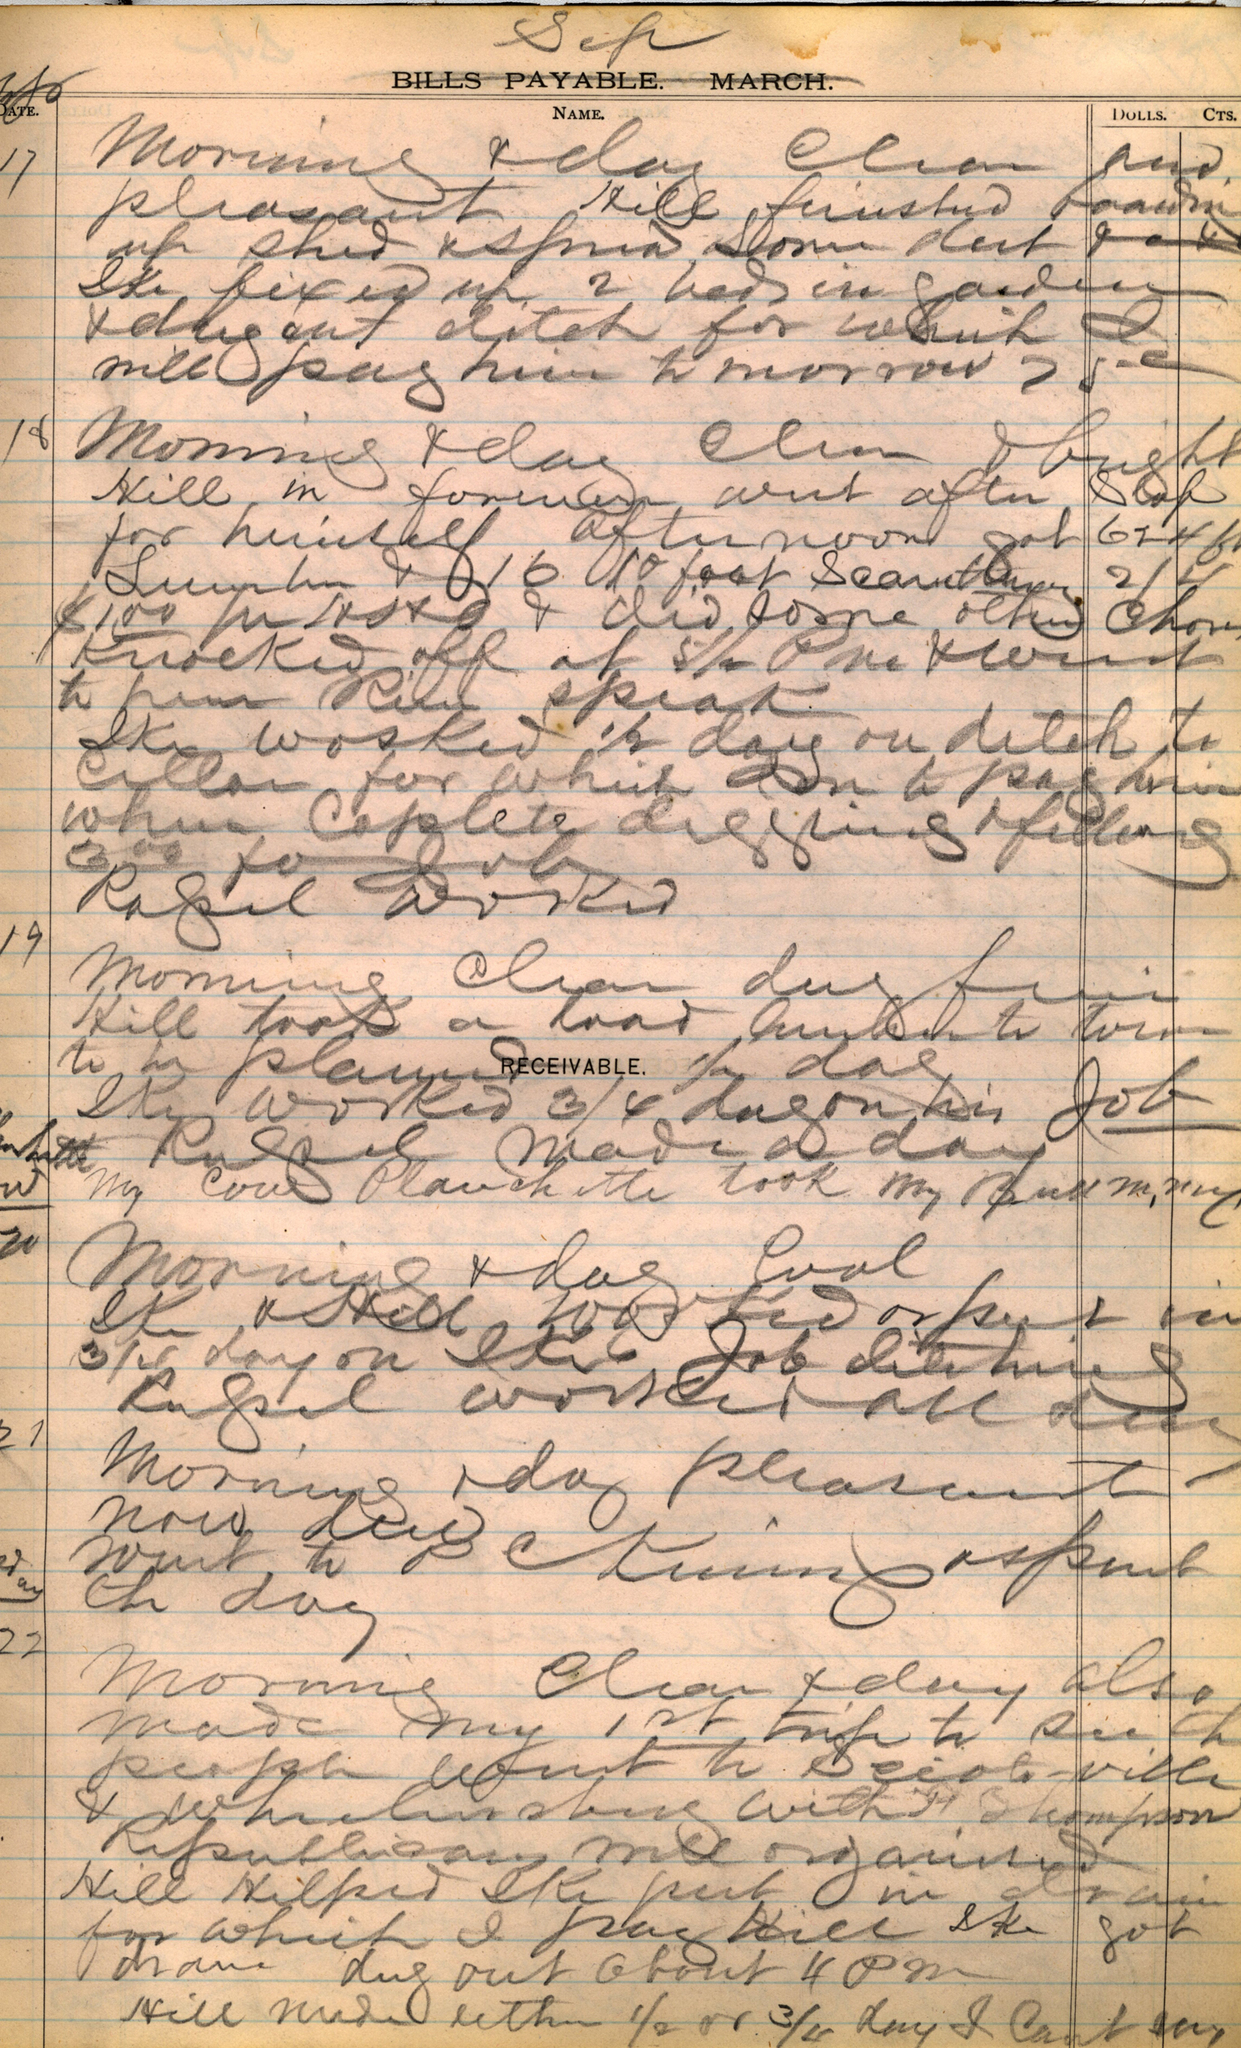 Sep
BILLS PAYABLE. MARCH.
DATE. NAME. DOLLS. CTS.
17 Morning & day Clear and
pleasant Hill finished boarding
up shed & spread some dirt
Ike fixed up 2 beds in garden
& dug out ditch for which I
will pay him tomorrow 75c
18 Morning & day Clear & bright
Hill in forenoon went after Slop
for himself afternoon got 624 ft
Lumber & 16 10 foot Scantling 2/4
$1.00 per & did some other Chores
Knocked off at 5 1/2 Pm & went
to hear speak
Ike worked 1/2 day on ditch to
Cellar for which am to pay him
when Coplete digging & filling
3.00 for Job
Rufsel worked
19
Morning Clear day fair
Hill took a load lumber to town
to be planed 1/2 day
RECEIVABLE.
Ike worked 3/4 day on his Job
Rufsel made a day
My Cow Planchette took My Bull
20
Morning & day Cool
Ike & Hill worked or put in
3/4 day on Ikes Job ditching
Rufsel worked all day
21
Morning & day pleasant
now
went to P C King & spent
the day
22
Morning Clear & day also
made my 1st trip to see the
people went to Scioto-ville
& Wheelersburg with Thompson
Republicans well organised
Hill Helped Ike put in drain
for which I pay Hill Ike got
drane dug out about 4 Pm
Hill made either 1/2 or 3/4 day I Cant say